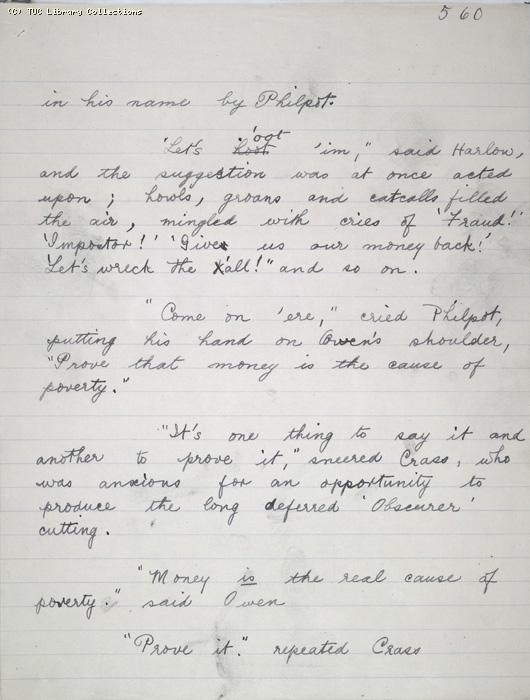 (C) TUC Library Collections
560
in his name by Philpot.
'ogt
'Let's hoot 'im," said Harlow,
and the suggestion was at once acted
upon; howls, groans and catcalls filled
the air, mingled with cries of 'Fraud!'
'Impostor!' 'Give us our money back!'
'Let's wreck the 'all!" and so on.
"Come on 'ere," cried Philpot,
putting his hand on Owen's shoulder,
"Prove that money is the cause of
poverty."
"It's one thing to say it and
another to prove it," sneered Crass, who
was anxious for an opportunity to
produce the long deferred 'Obscurer'
cutting.
"Money is the real cause of
poverty." said Owen
"Prove it." repeated Crass